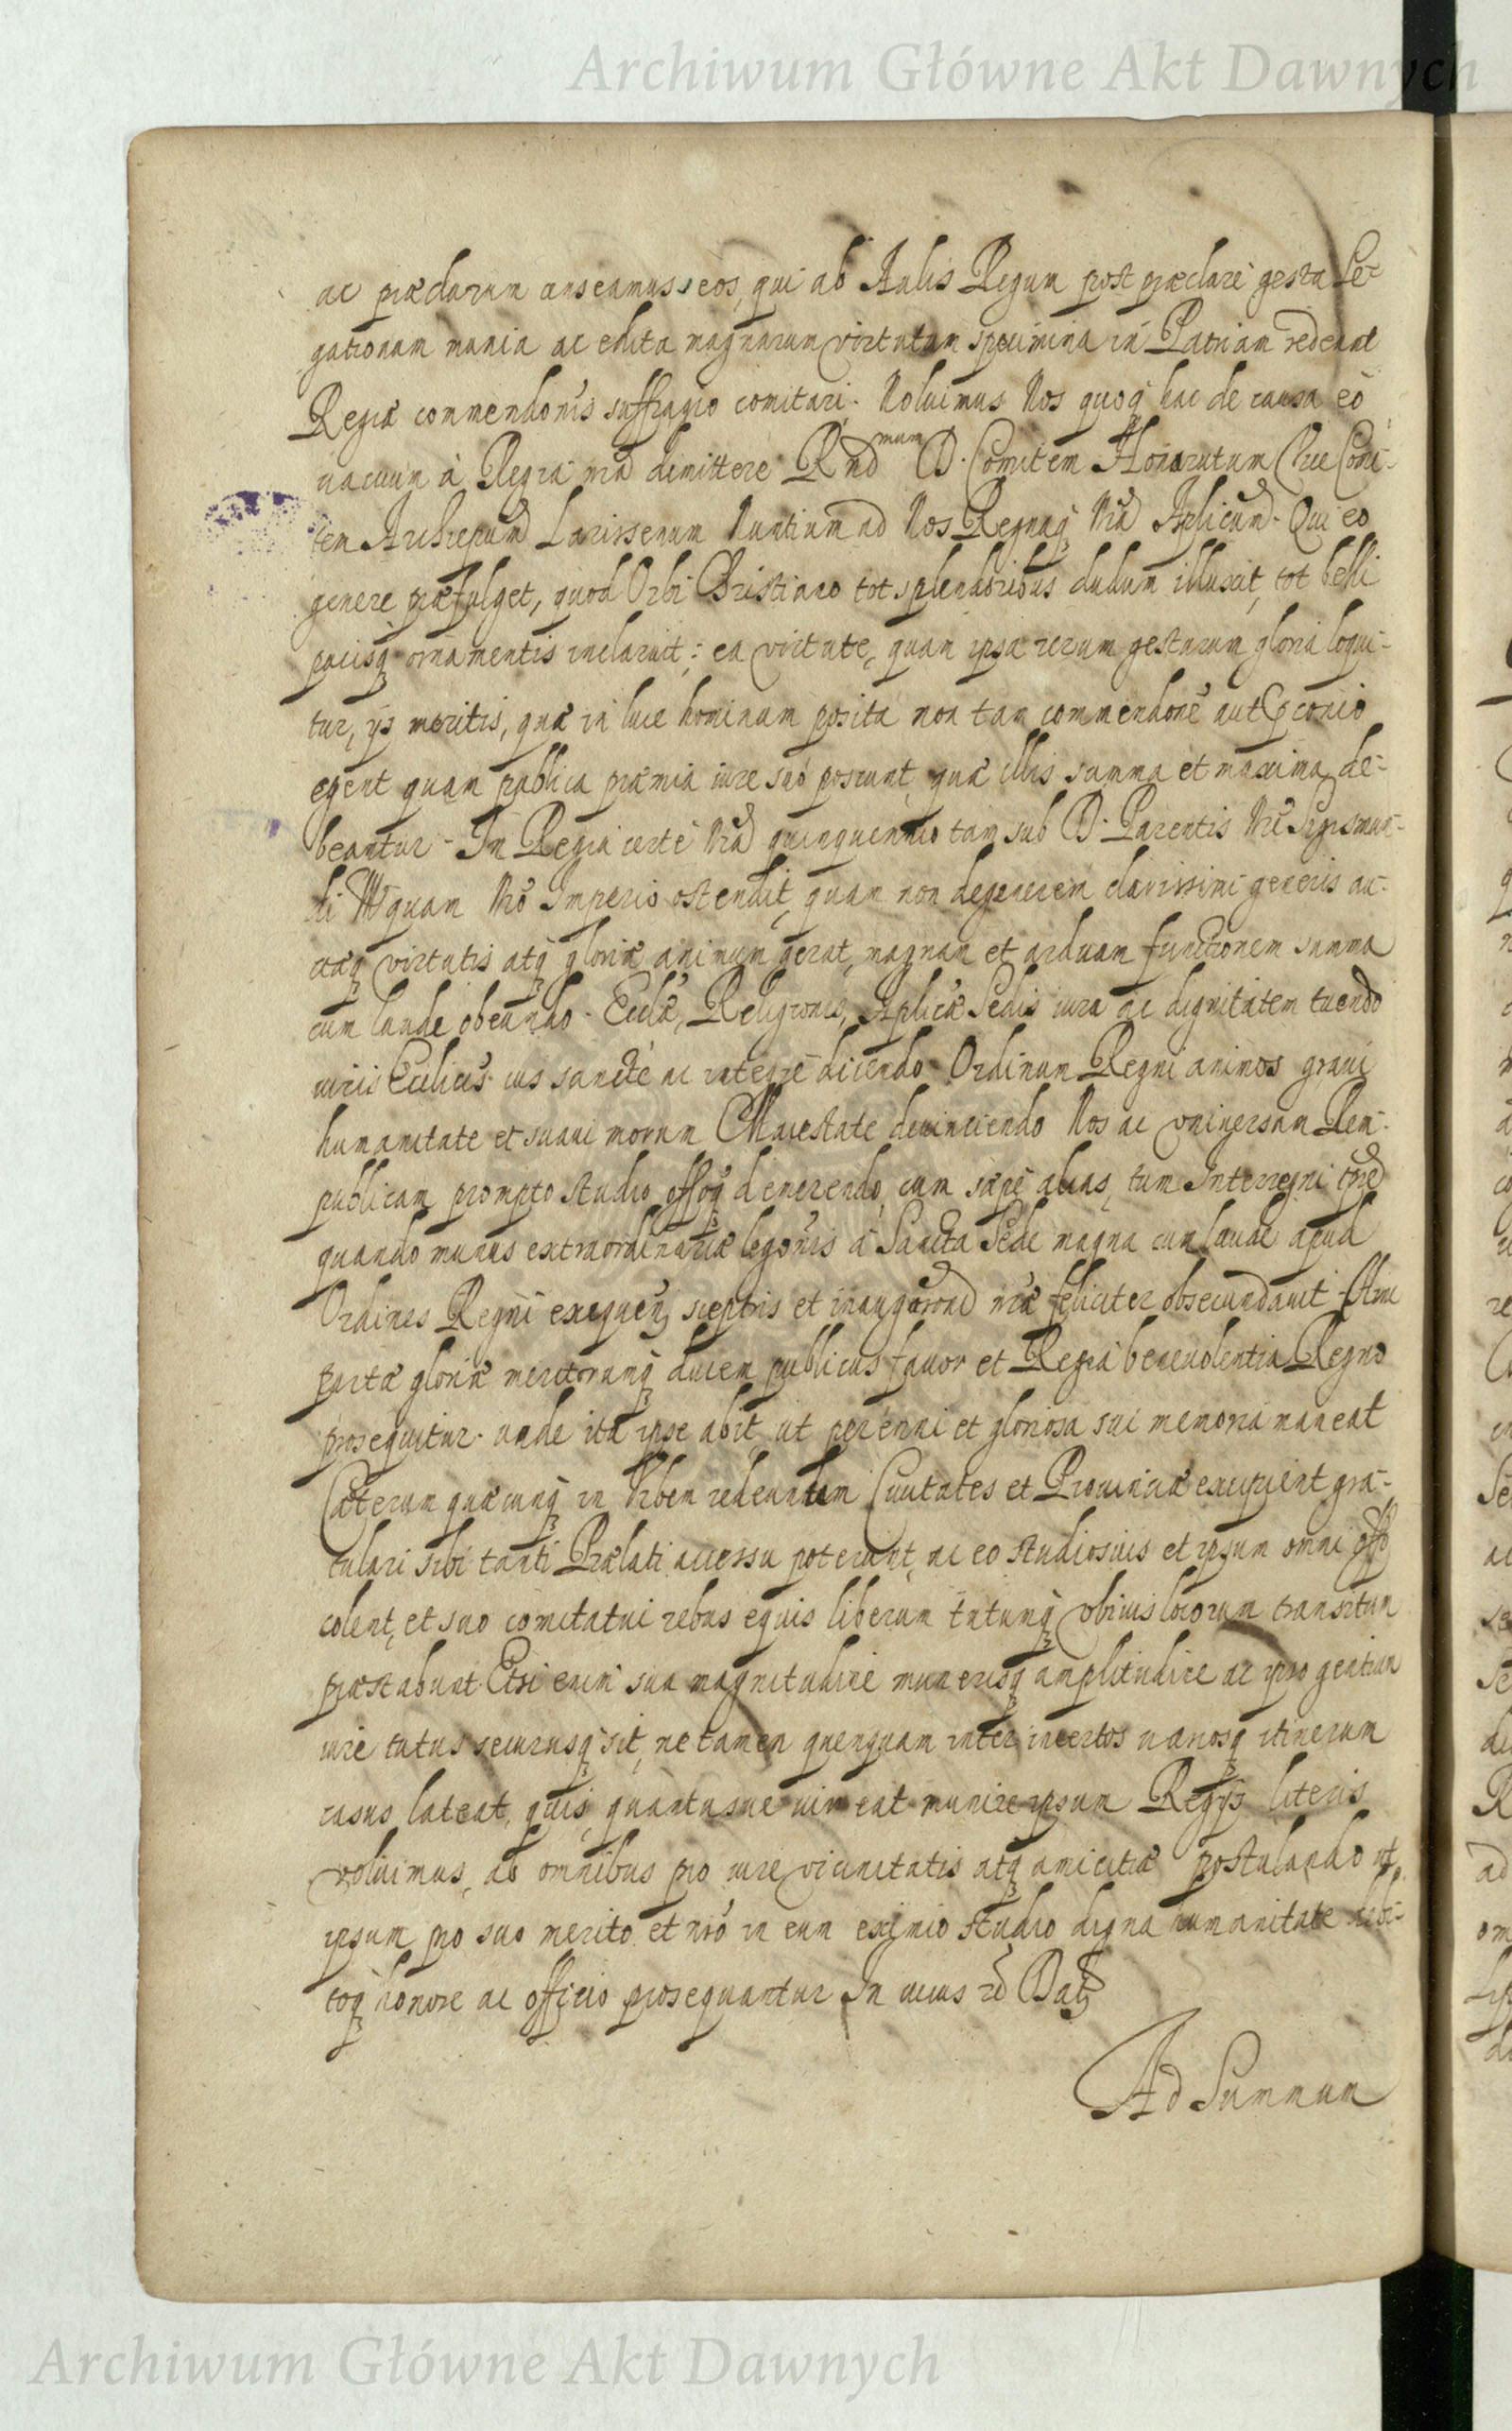 Archiwum Główne Akt Dawnych
ac præclarum censeamus eos, qui ab Aulis Regum post præclarè gesta Le-
gationum munia ac edita magnarum virtutum specimina in Patriam redeunt
Regiæ commendonis suffragio comitari. Noluimus Nos quoq hac de causa eò
vacuum à Regia nrã dimittere Rnd mum D. Comitem Honoratum Vice Comi-
tem Archiepum Larissenum Nuntium ad Nos Regnaq Nrã Aplicum. Qui eo
genere præfulget, quod Orbi Christiano tot splendoribus dudum illuxit, tot belli
pacisq ornamentis inclaruit: ea virtute, quam ipsa rerum gestarum gloria loqui-
tur, ijs meritis, quæ in luce hominum posita non tam commendone aut præconio
egent quam publica præmia iure suo poscunt, quæ illis summa et maxima de-
beantur. In Regia certè Nrã quinquennio tam sub D. Parentis Nri Sigismun-
di quam Nrõ Imperio ostendit, quam non degenerem clarissimi generis au-
itæq virtutis atq gloriæ animum gerat, magnam et arduam functionem summa
cum laude obeundo. Ecclæ, Religionis, Aplicæ Sedis iura ac dignitatem tuendo
viris Ecclicis ius sanctè ac integrè dicendo. Ordinum Regni animos graui
humanitate et suaui morum Maiestate deuinciendo Nos ac vniuersam Rem-
publicam prompto studio, offoq demerendo, cum sæpè alias, tum Interregni tpre
quando munus extraordinariæ legonis à Sancta Sede magna cum laude apud
Ordines Regni exequens, sceptris et inauguraoni nræ feliciter obsecundauit.
partæ gloriæ meritorumq ducem publicus fauor et Regia beneuolentia Regno
prosequitur. unde ita ipse abit, ut perenni et gloriosa sui memoria maneat
Cæterum quæcunq in Vrbem redeuntem Ciuitates et Prouinciæ excipient gra-
tulari sibi tanti Prælati accessu poterunt, ac eo studiosius et ipsum omni offo
colent, et suo comitatui rebus equis liberum tutumq vbiuis locorum transitum
præstabunt. Etsi enim sua magnitudine munerisq amplitudine ac ipso gentium
iure tutus securusq sit, ne tamen quenquam inter incertos variosq itinerum
casus lateat, quis, quantusue vir eat munire ipsum Regijs literis
voluimus, ab omnibus pro iure vicinitatis atq amicitiæ postulando ut
ipsum pro suo merito et nrõ in eum eximio studio digna humanitate debi-
toq honore ac officio prosequantur In cuius rei Dat
Ad Summum
Archiwum Główne Akt Dawnych